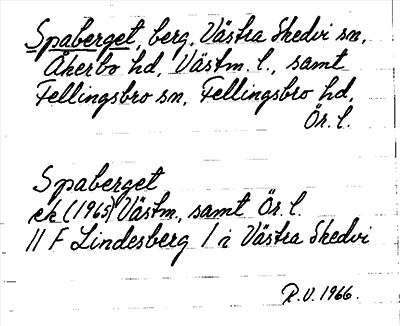 Spaberget, berg, Västra Skedvi sn,
Åkerbo hd, Västm. l., samt
Fellingsbro sn, Fellingsbro hd,
Ör. l.
Spaberget
ek (1965) Västm., samt Ör. l.
11 F Lindesberg 1 i Västra Skedvi
R.U. 1966.